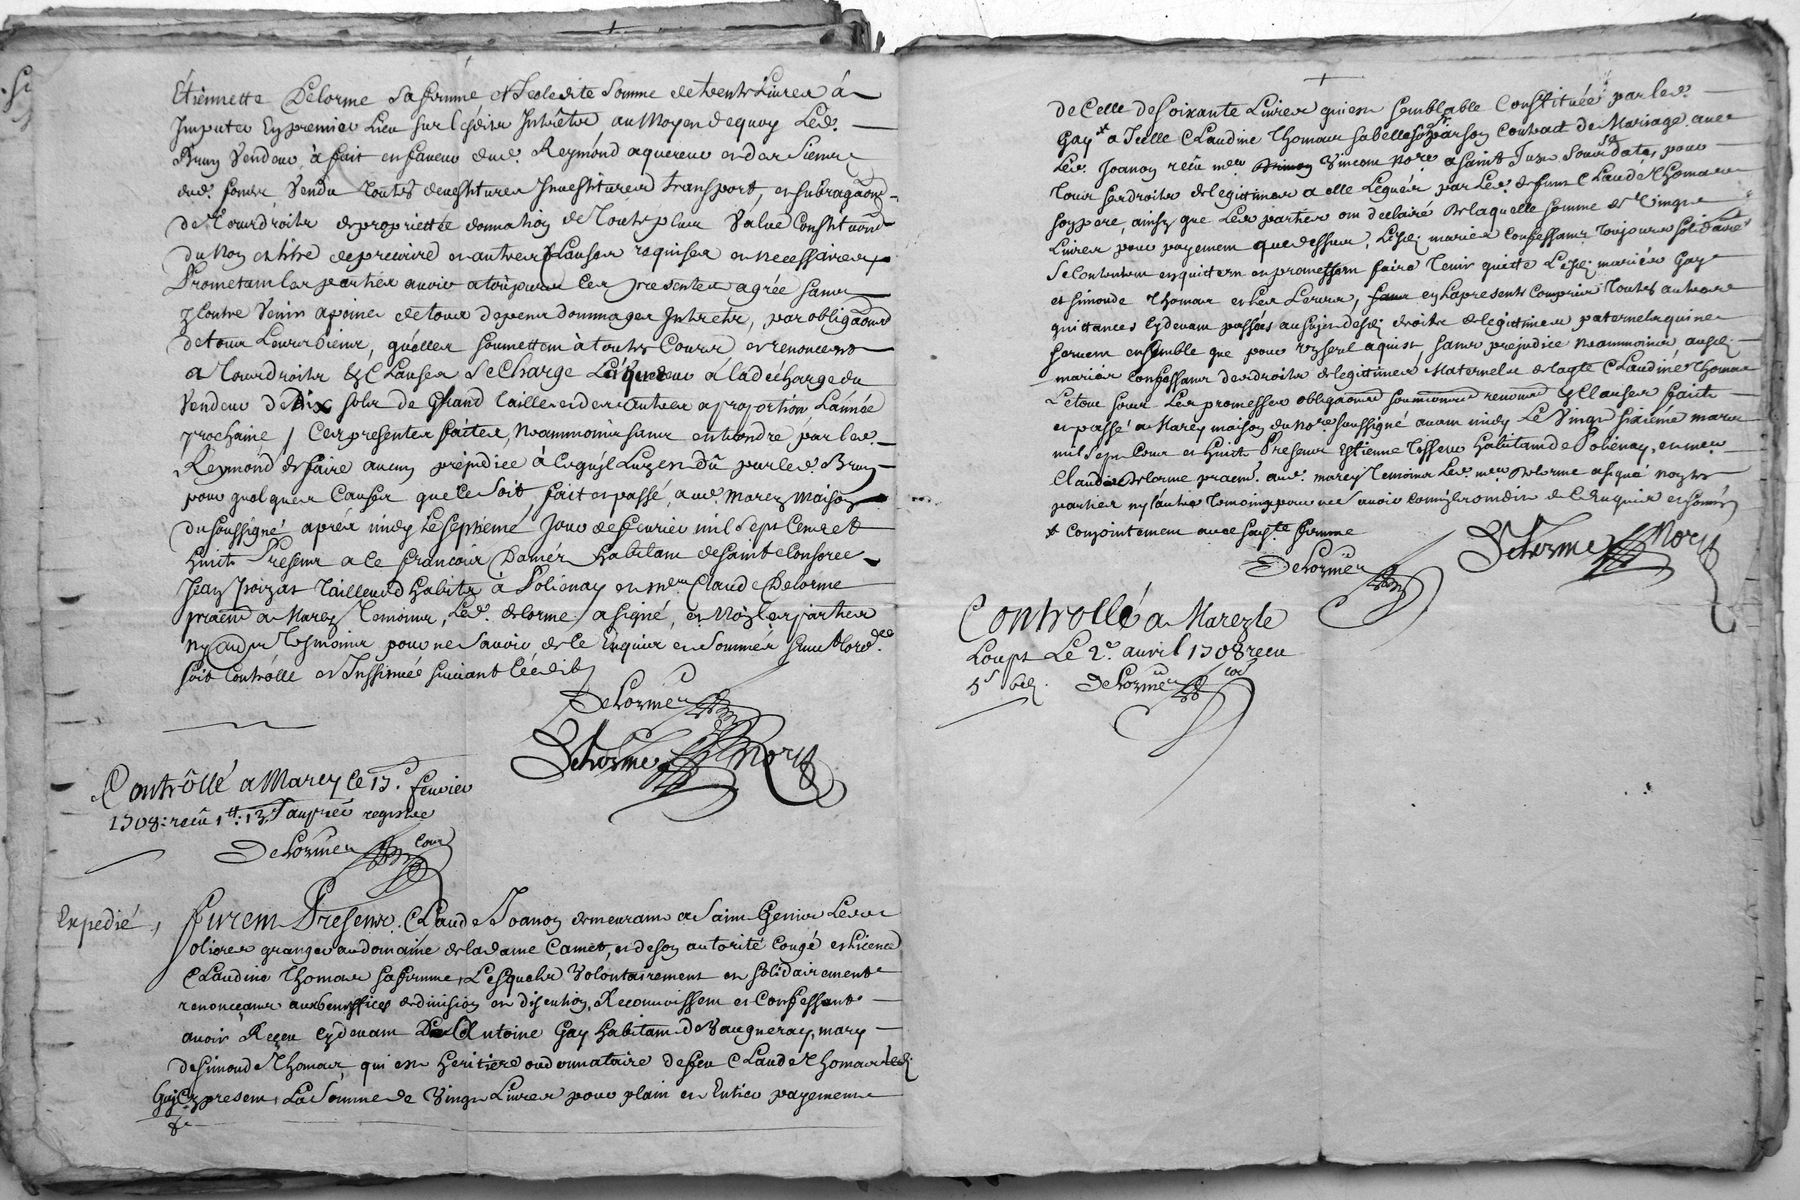 Étiennette Delorme sa femme et de ladite somme de trente Livres à
Imputer En premier Lieu sur lesdits Interets, au Moyen de quoy Led.
Brun Vendeur à fait en faveur dud. Reymond aquereur et des Siens
dud. fonds Vendu toutes devestitures Investitures transport, et subrogaõn
de tous droits de proprietté donnation de toute plus Value Constituõn
du Nom et titre de precaire et autres Clauses requises et necessaires
Promettans les parties avoir a toujours Ces presentes agrée sans
y Contre Venir a peine de tous depens dommages Interets, par obligaõn
de tous Leurs biens, qu'elles soumettent à toutes Cours et renoncent
a tous droits & Clauses Se Charge L'aquereur à la décharge du
Vendeur de dix sols de Grand Taille et des autres a proportion L'année
prochaine / Ces presentes faites, Neanmoins sans entendre par led.
Reymond de faire aucun prejudice à Ce qu'il Luy est dû par led. Brun
pour quelques Causes que Ce soit, fait et passé, aud. Marcy Maison
du soussigné après midy Le Septieme Jour de fevrier mil Sept Cent et
huit Present a Ce françois Damés habitant de Sainte Consorce
Jean Poizat Tailleur d'habits à Polienay et me. Claude Delorme
praticn a Marcy Temoins, Led. delorme a signé, et Non les parties
ny autre Tesmoins pour ne savoir de Ce Enquis et Sommés
soit Controllé et Inssinué suivant L'edit
Delorme
Delorme Mory
Controllé a Marcy le 17. fevrier
1708: receu 1tt: 13s registre
Delorme
Expedié, furent Presens Claude Joanon demeurant a Saint Genis Les
olieres granger au domaine de la dame Camet, et de son autorité Congé et Licence
Claudine Thomas sa femme, Lesquels Volontairement et solidairement
renonceans aux benefices de division et discution, Reconnoissent et Confessent
avoir Reçeu cy devant De Antoine Gay habitant de Vaugneray, mary
de simonde Thomas, qui est heritiere ou donnataire de feu Claude Thomas Led.
Gay Cy present, La Somme de Vingt Livres pour plain et Entier payement
&
de Celle de soixante Livres qui est semblable Constituée par led.
Gay + a Icelle Claudine Thomas sa belle soeur par son Contract de Mariage avec
Led. Joanon reçu me. Vincent Nore. a Saint Jux Sous sa date, pour
tous ses droits de legittimes a elle Legués, par Led. defunt Claude Thomas
son pere, ainsy que Les parties ont declaré de laquelle somme de Vingt
Livres pour payement que dessus, Lesd. mariés Confessans toujours solidaires
Se Contentent et quittent et promettent faire Tenir quitte Lesd. mariés Gay
et simonde Thomas et Les Leurs, en la presente Comprises toutes autres
quittances Cy devant passées au sujet desd. droits de legittimes paternels qui ne
servent ensemble que pour un seul aquist, sans prejudice Neanmoins ausd.
mariés Confessans des droits de legittimes Maternels de lade. Claudine Thomas
Le tout sous Les promesses obligaõns soumissions renonc. & Clauses fait
et passé a Marcy maison du Nore soussigné avant midy Le Vingt sixieme mars
mil Sept Cent et huit Present Estienne Tisseur habitant de Polienay, et me.
Claude Delorme praticn. aud. marcy Temoins Led. me. Delorme a signé non les
parties ny l'autre Temoing pour ne savoir comme ont dit de Ce Enquis et sommés
+ Conjointement avec sad.te femme
Delorme
Delorme Mory
Controllé a Marcy le
Loup Le 2e. avril 1708 receu
5s 6d. Delorme